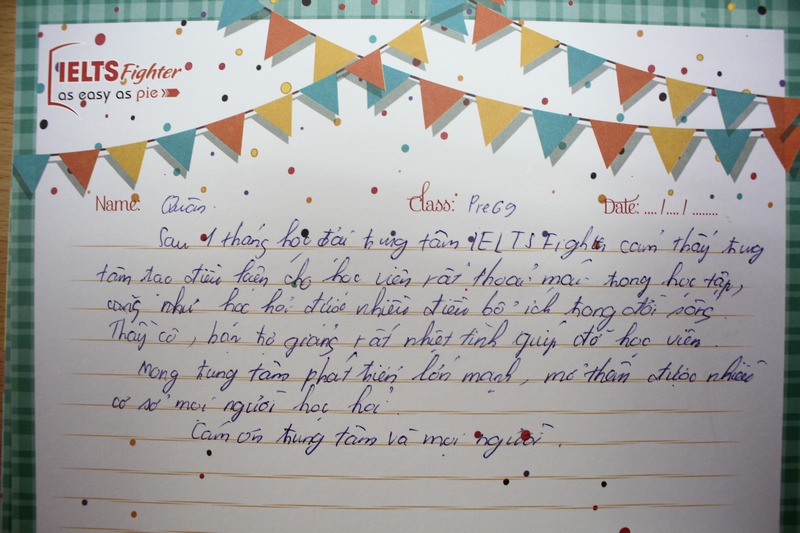 IELTS Fighter
as easy as pie
Name: Quân Class: Pre69 Date: ..../..../........
Sau 1 tháng học tại trung tâm IELTS Fighter cảm thấy trung
tâm tạo điều kiện cho học viên rất thoải mái trong học tập,
cũng như học hỏi được nhiều điều bổ ích trong đời sống.
Thầy cô, bạn trợ giảng rất nhiệt tình giúp đỡ học viên.
Mong trung tâm phát triển lớn mạnh, mở thêm được nhiều
cơ sở mọi người học hỏi.
Cảm ơn trung tâm và mọi người.